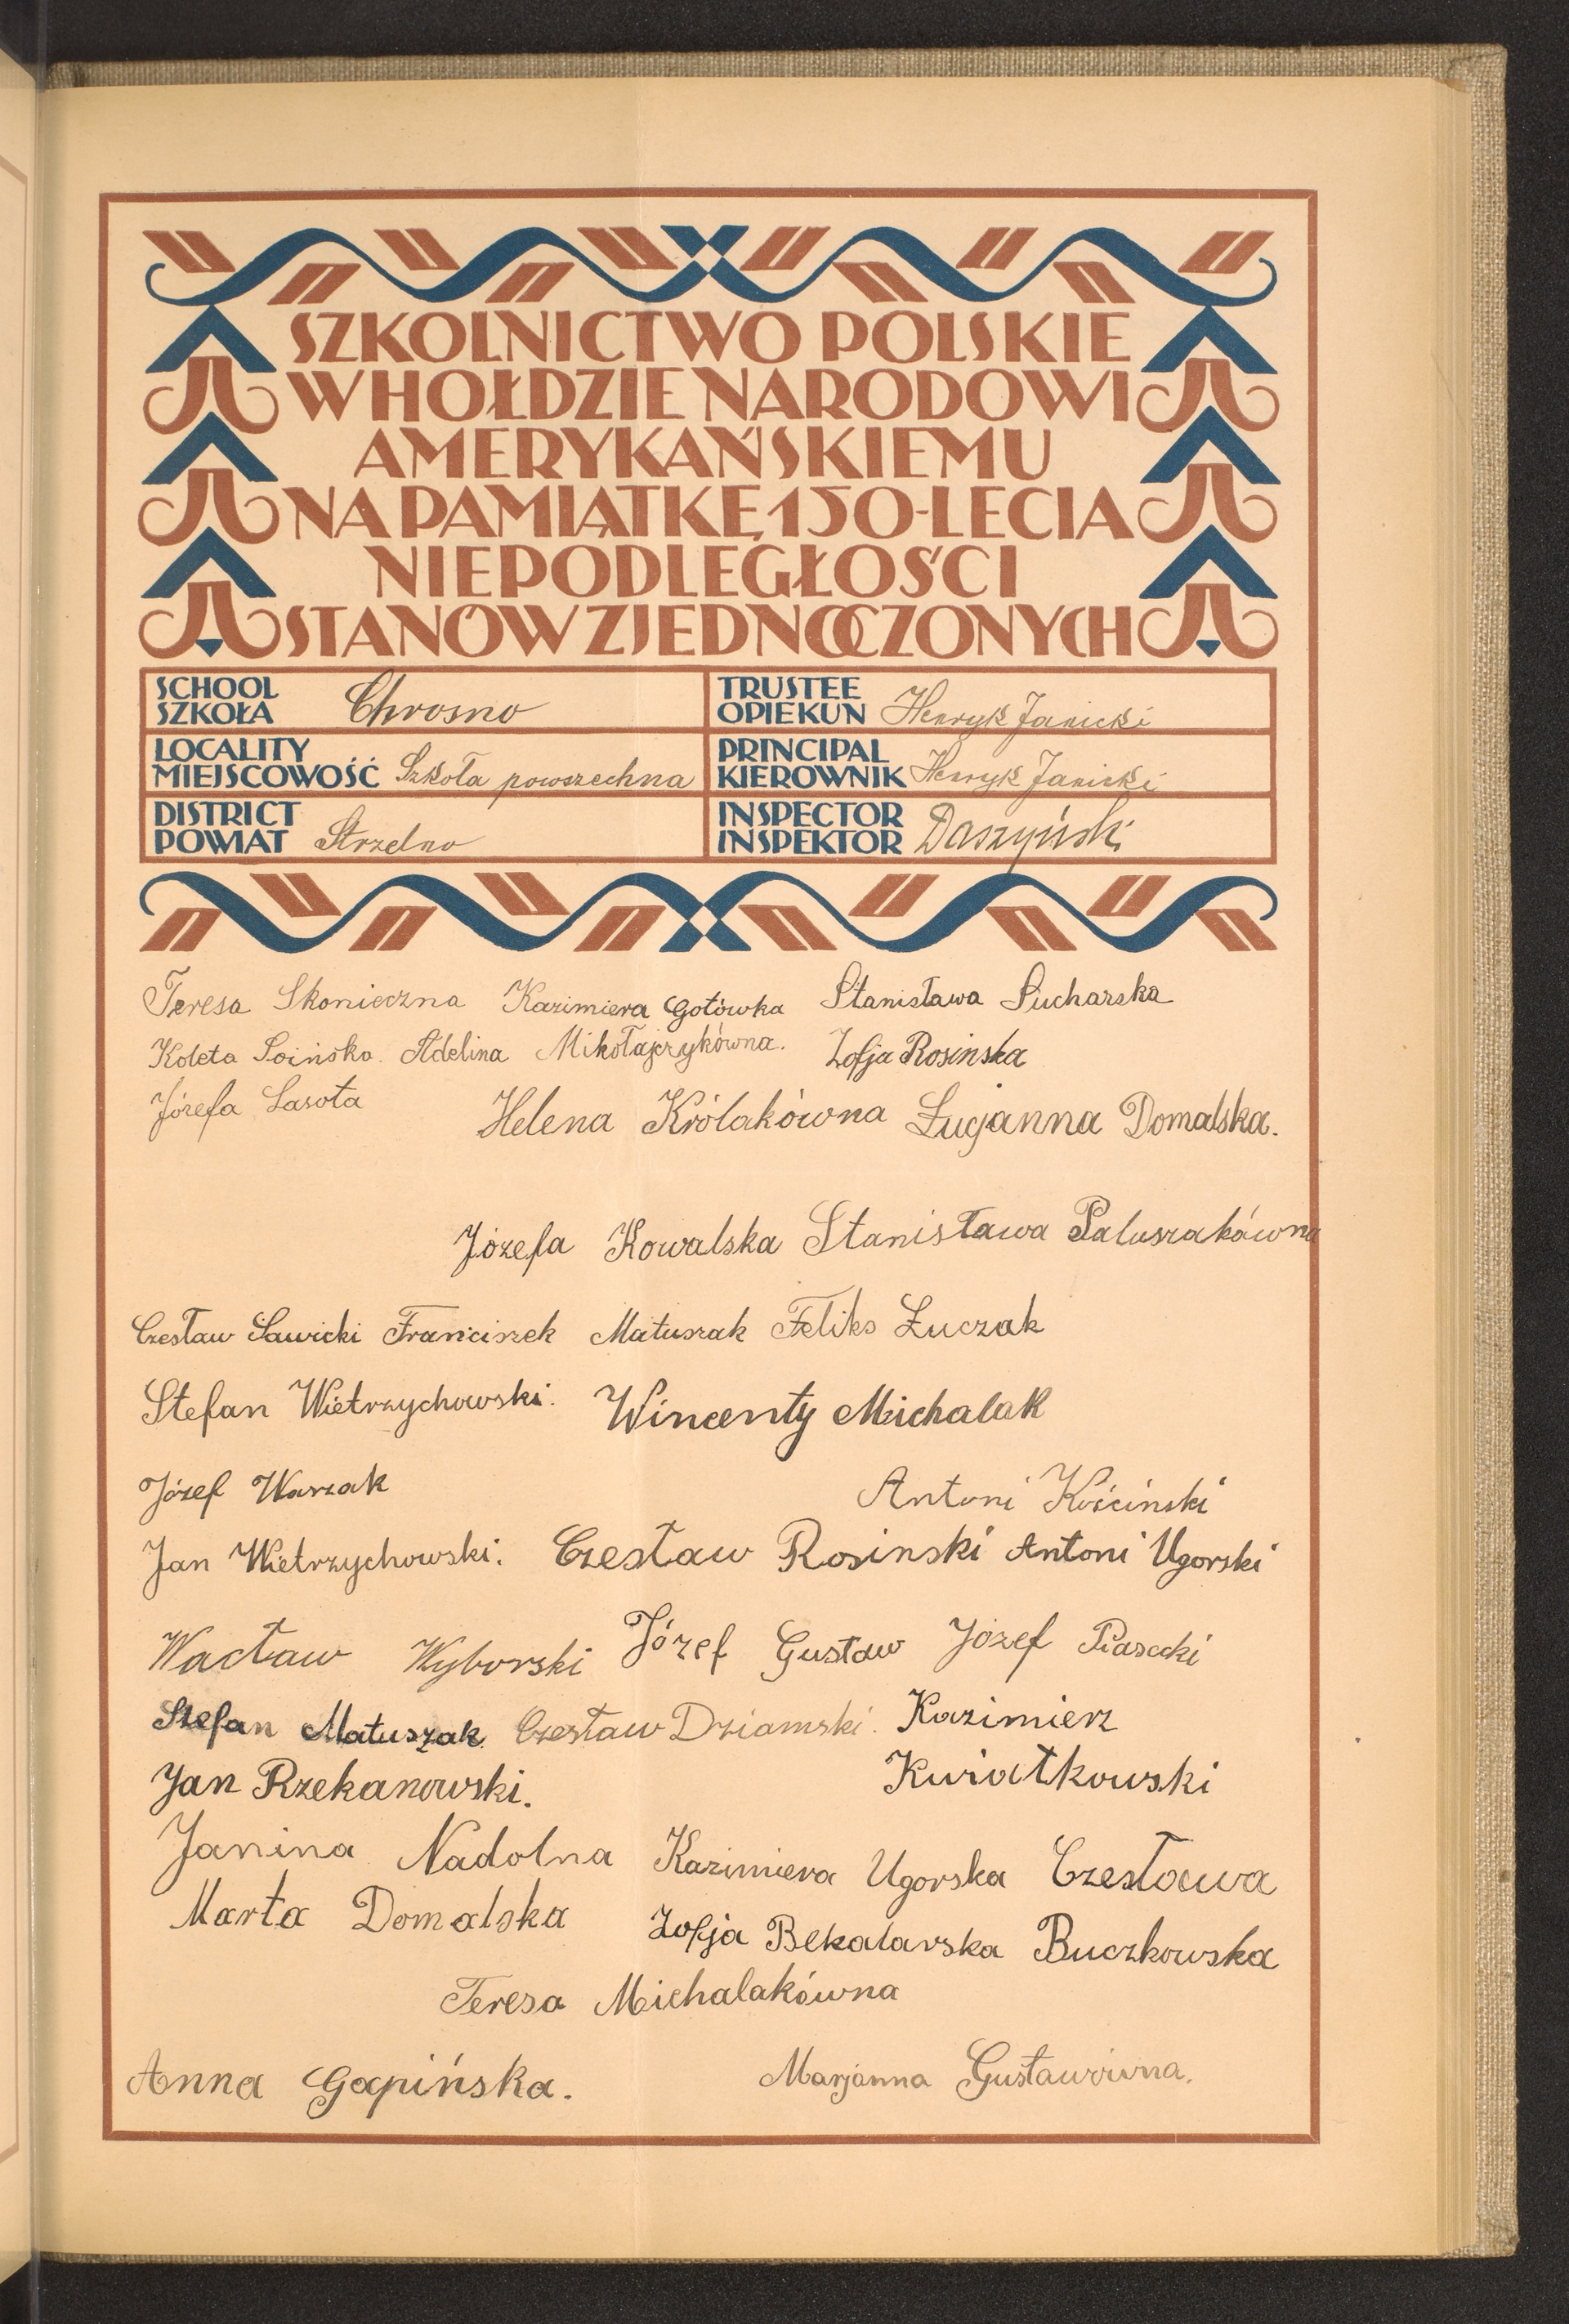 SZKOLNICTWO POLSKIE
W HOŁDZIE NARODOWI
AMERYKAŃSKIEMU
NA PAMIĄTKĘ 150-LECIA
NIEPODLEGŁOŚCI
STANÓW ZJEDNOCZONYCH
SCHOOL
SZKOŁA Chrosno
TRUSTEE
OPIEKUN Henryk Janicki
LOCALITY
MIEJSCOWOŚĆ Szkoła powszechna
PRINCIPAL
KIEROWNIK Henryk Janicki
DISTRICT
POWIAT Strzelno
INSPECTOR
INSPEKTOR Daszyński
Teresa Skonieczna Kazimiera Gotówka Stanisława Sucharska
Koleta Soińska. Adelina Mikołajczykówna. Zofja Rosinska
Józefa Lasota Helena Królakówna Łucjanna Domalska.
Józefa Kowalska Stanisława Paluszakówna
Czesław Sawicki Franciszek Matuszak Feliks Łuczak
Stefan Wietrzychowski. Wincenty Michalak
Józef Warzak Antoni Kościnski
Jan Wietrzychowski. Czesław Rosinski Antoni Ugorski
Wacław Wyborski Józef Gustaw Józef Piasecki
Stefan Matuszak. Czesław Dziamski. Kazimierz
Jan Rzekanowski. Kwiatkowski
Janina Nadolna Kazimiera Ugorska Czesława
Marta Domalska Zofja Bekalarska Buczkowska
Teresa Michalakówna
Anna Gapińska. Marjanna Gustawówna.